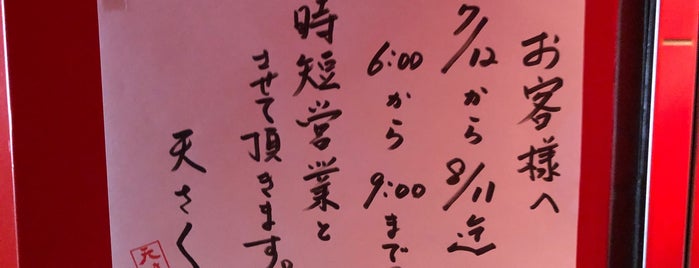 お客様へ
7/12から8/11迄
6:00から9:00まで
時短営業と
させて頂きます。
天さく